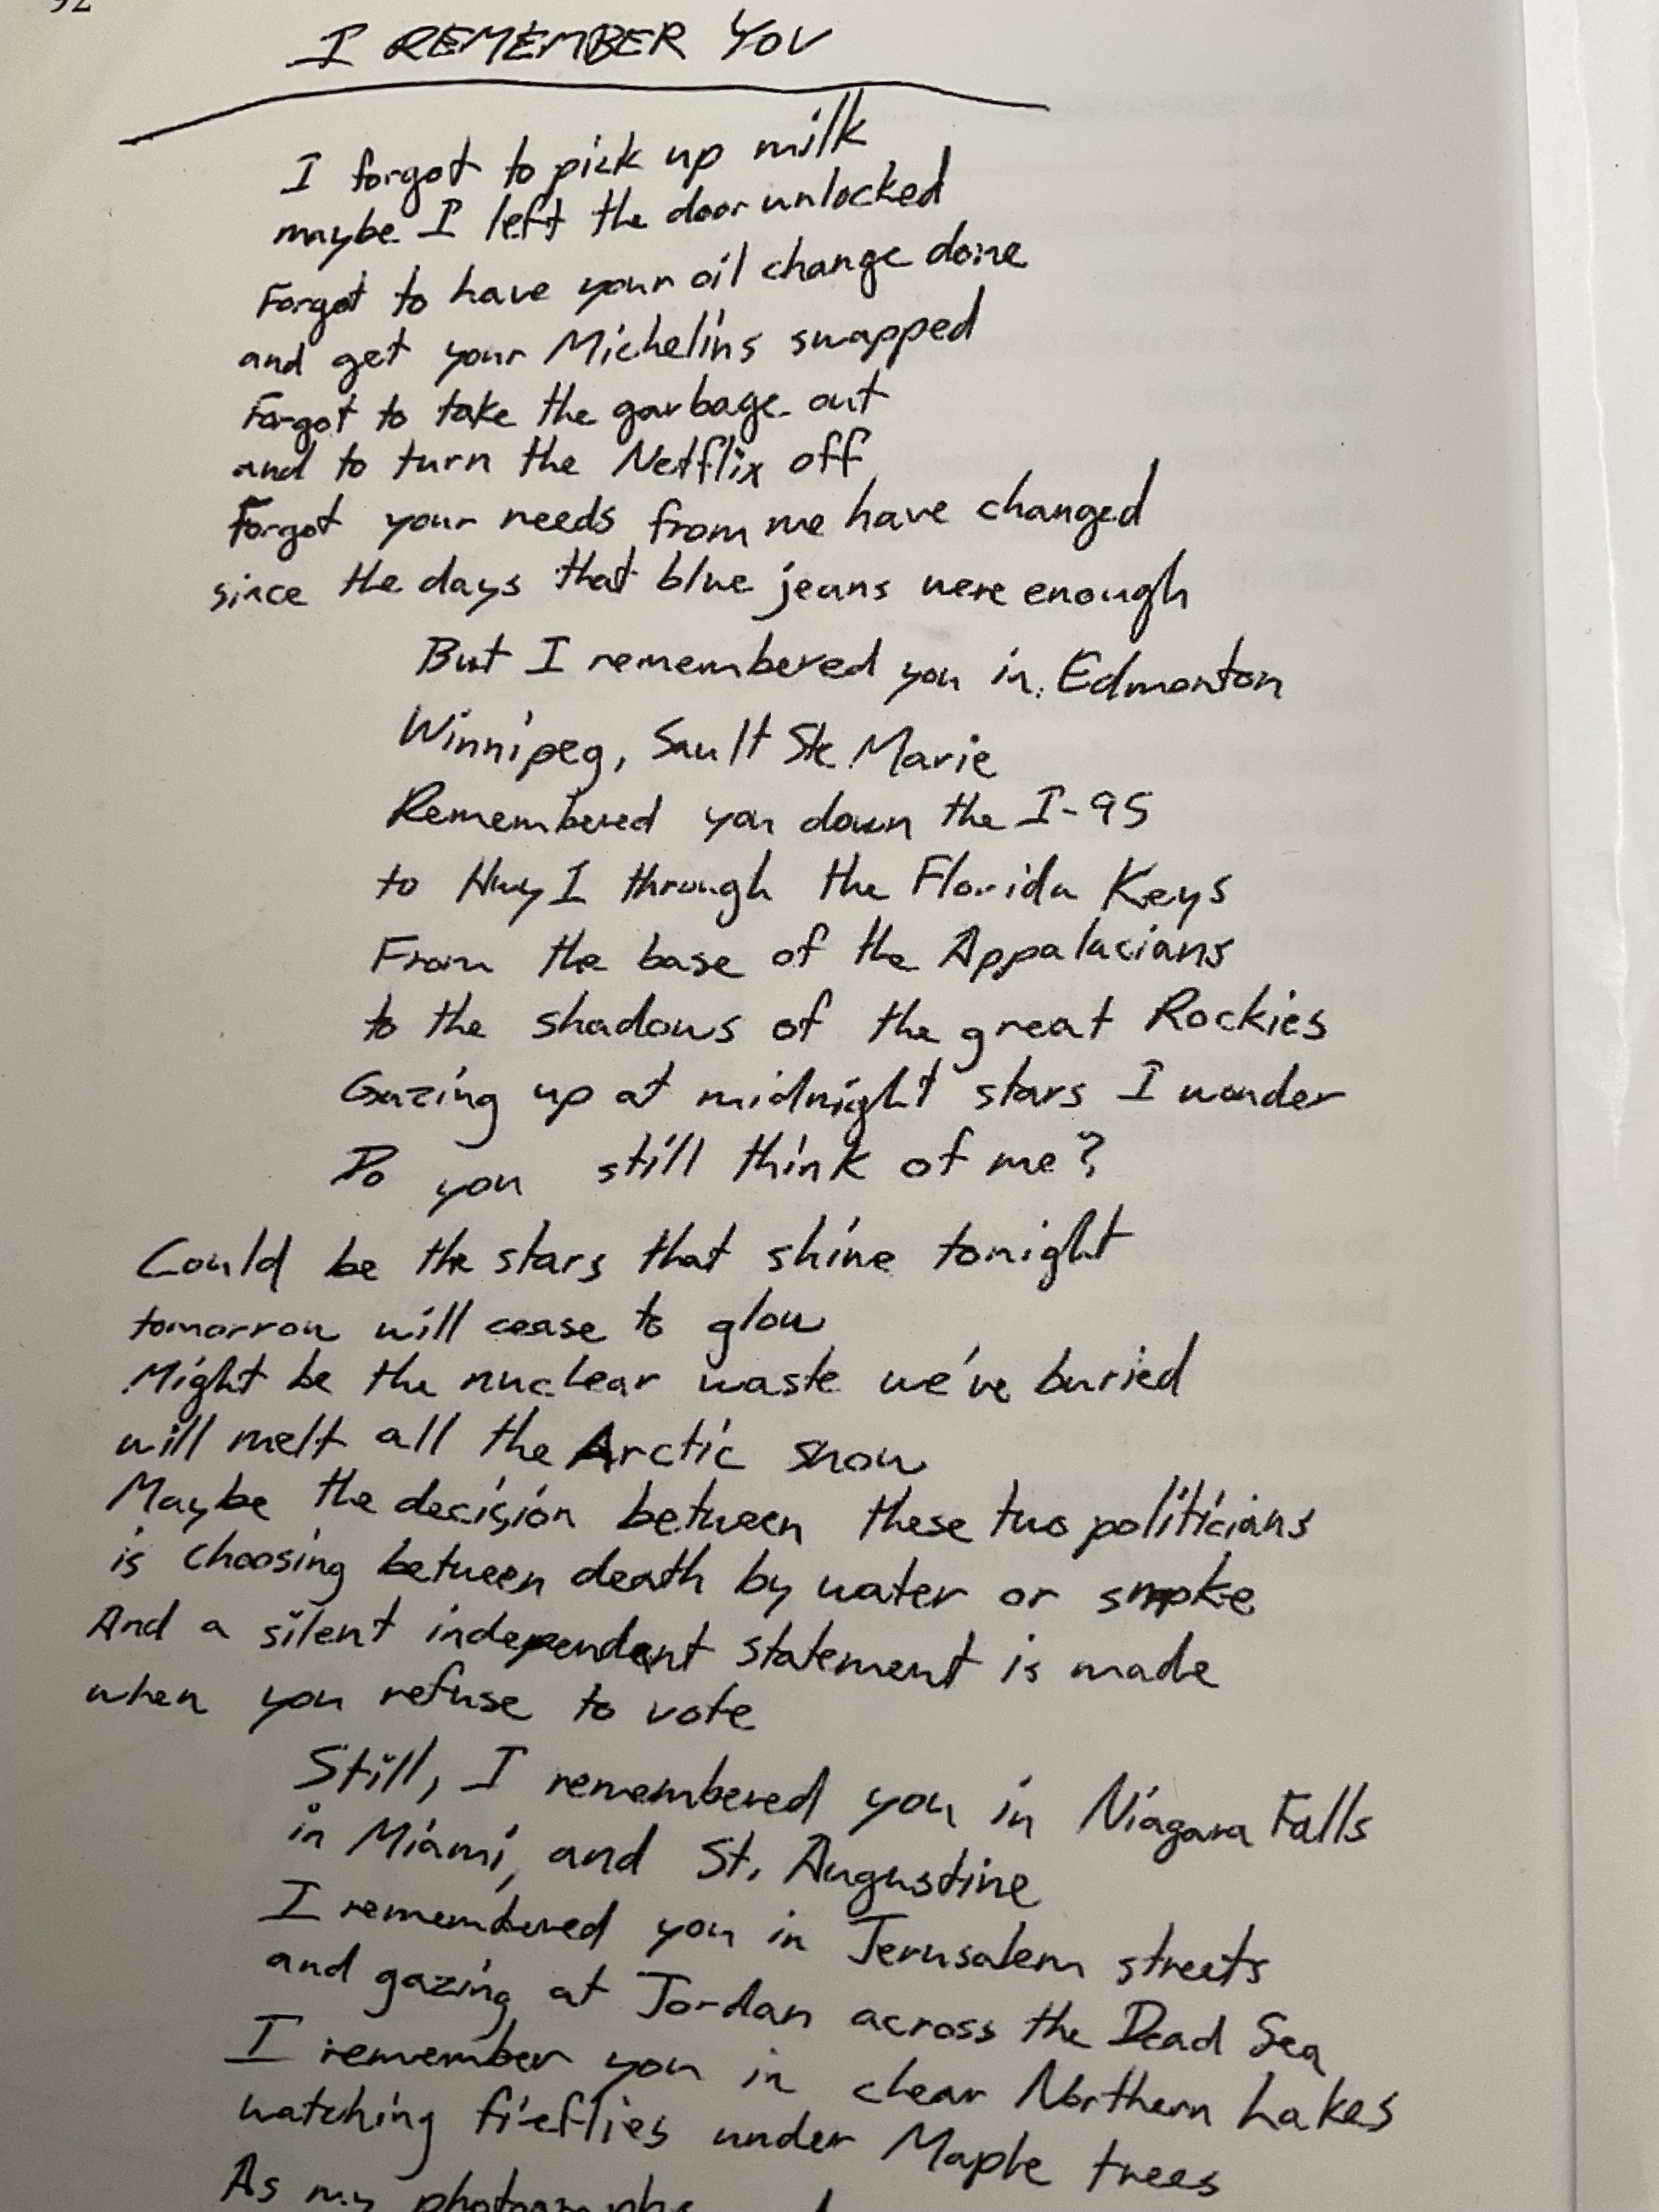 I REMEMBER YOU
I forgot to pick up milk
maybe I left the door unlocked
Forgot to have your oil change done
and get your Michelins swapped
Forgot to take the garbage out
and to turn the Netflix off
Forgot your needs from me have changed
since the days that blue jeans were enough
But I remembered you in Edmonton
Winnipeg, Sault Ste Marie
Remembered you down the I-95
to Hwy 1 through the Florida Keys
From the base of the Appalacians
to the shadows of the great Rockies
Gazing up at midnight stars I wonder
Do you still think of me?
Could be the stars that shine tonight
tomorrow will cease to glow
Might be the nuclear waste we've buried
will melt all the Arctic snow
Maybe the decision between these two politicians
is choosing between death by water or smoke
And a silent independent statement is made
when you refuse to vote
Still, I remembered you in Niagara Falls
in Miami, and St. Augustine
I remembered you in Jerusalem streets
and gazing at Jordan across the Dead Sea
I remember you in clear Northern Lakes
watching fireflies under Maple trees
As my photographs